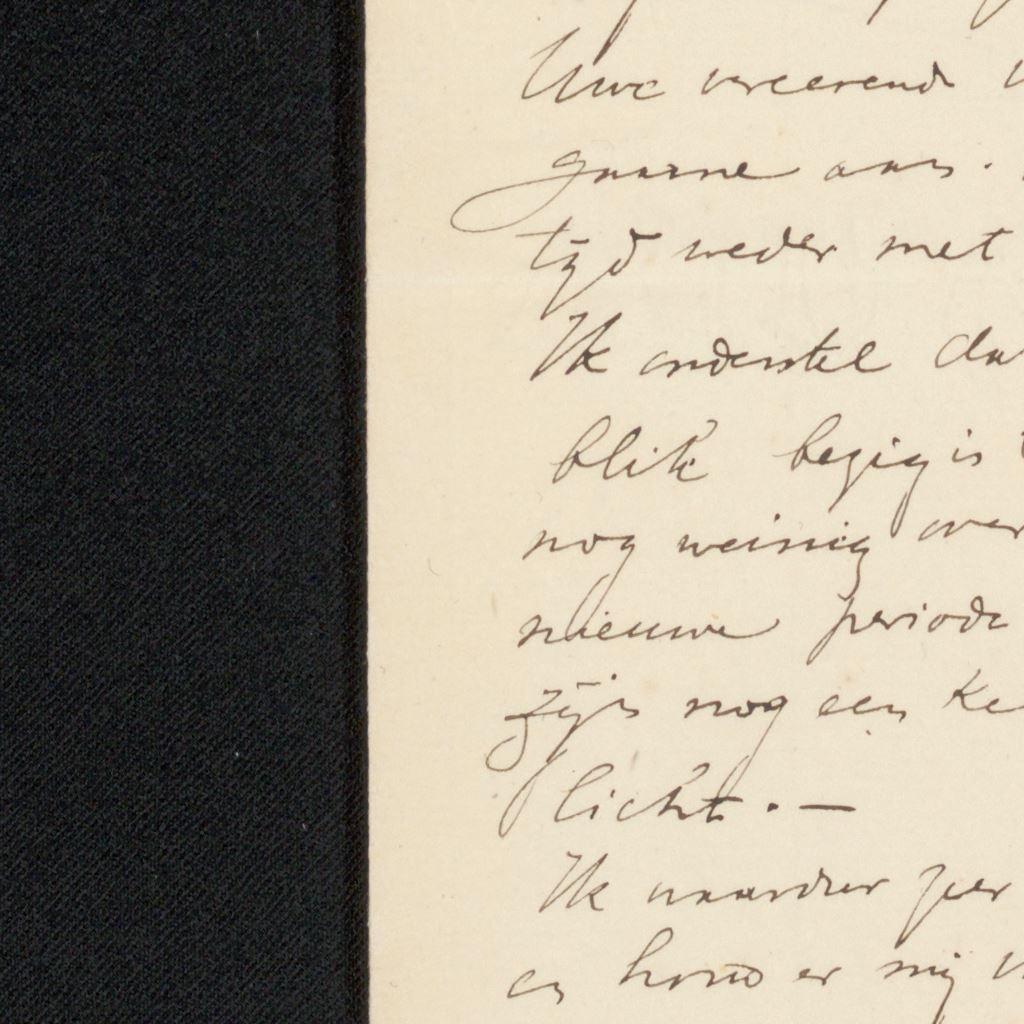 Uwe vereerend
gaarne aan.
tijd weder met
Ik onderstel da
blik bezig is
nog weinig over
nieuwe periode
zijn nog een ke
licht. —
Ik aanvaar per
en houd er mij v